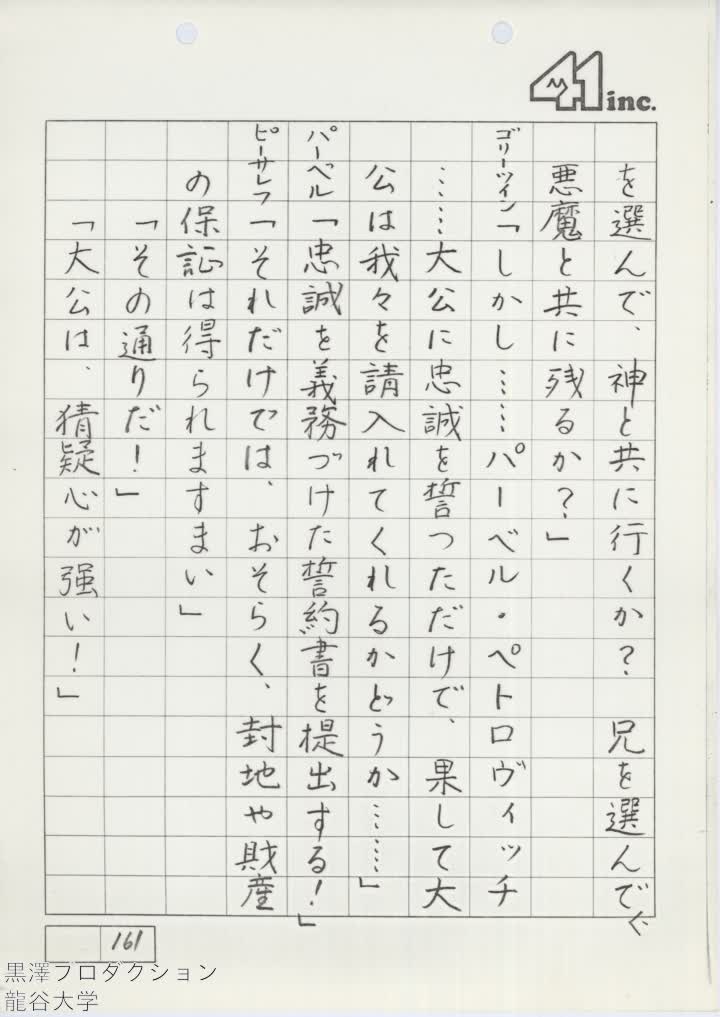 41 inc.
を選んで、神と共に行くか？　兄を選んで
悪魔と共に残るか？」
ゴリーツイン「しかし……パーベル・ペトロヴィッチ
……大公に忠誠を誓つただけで、果して大
公は我々を請入れてくれるかどうか……」
パーベル「忠誠を義務づけた誓約書を提出する！」
ピーサレフ「それだけでは、おそらく、封地や財産
の保証は得られますまい」
「その通りだ！」
「大公は、猜疑心が強い！」
161
黒澤プロダクション
龍谷大学